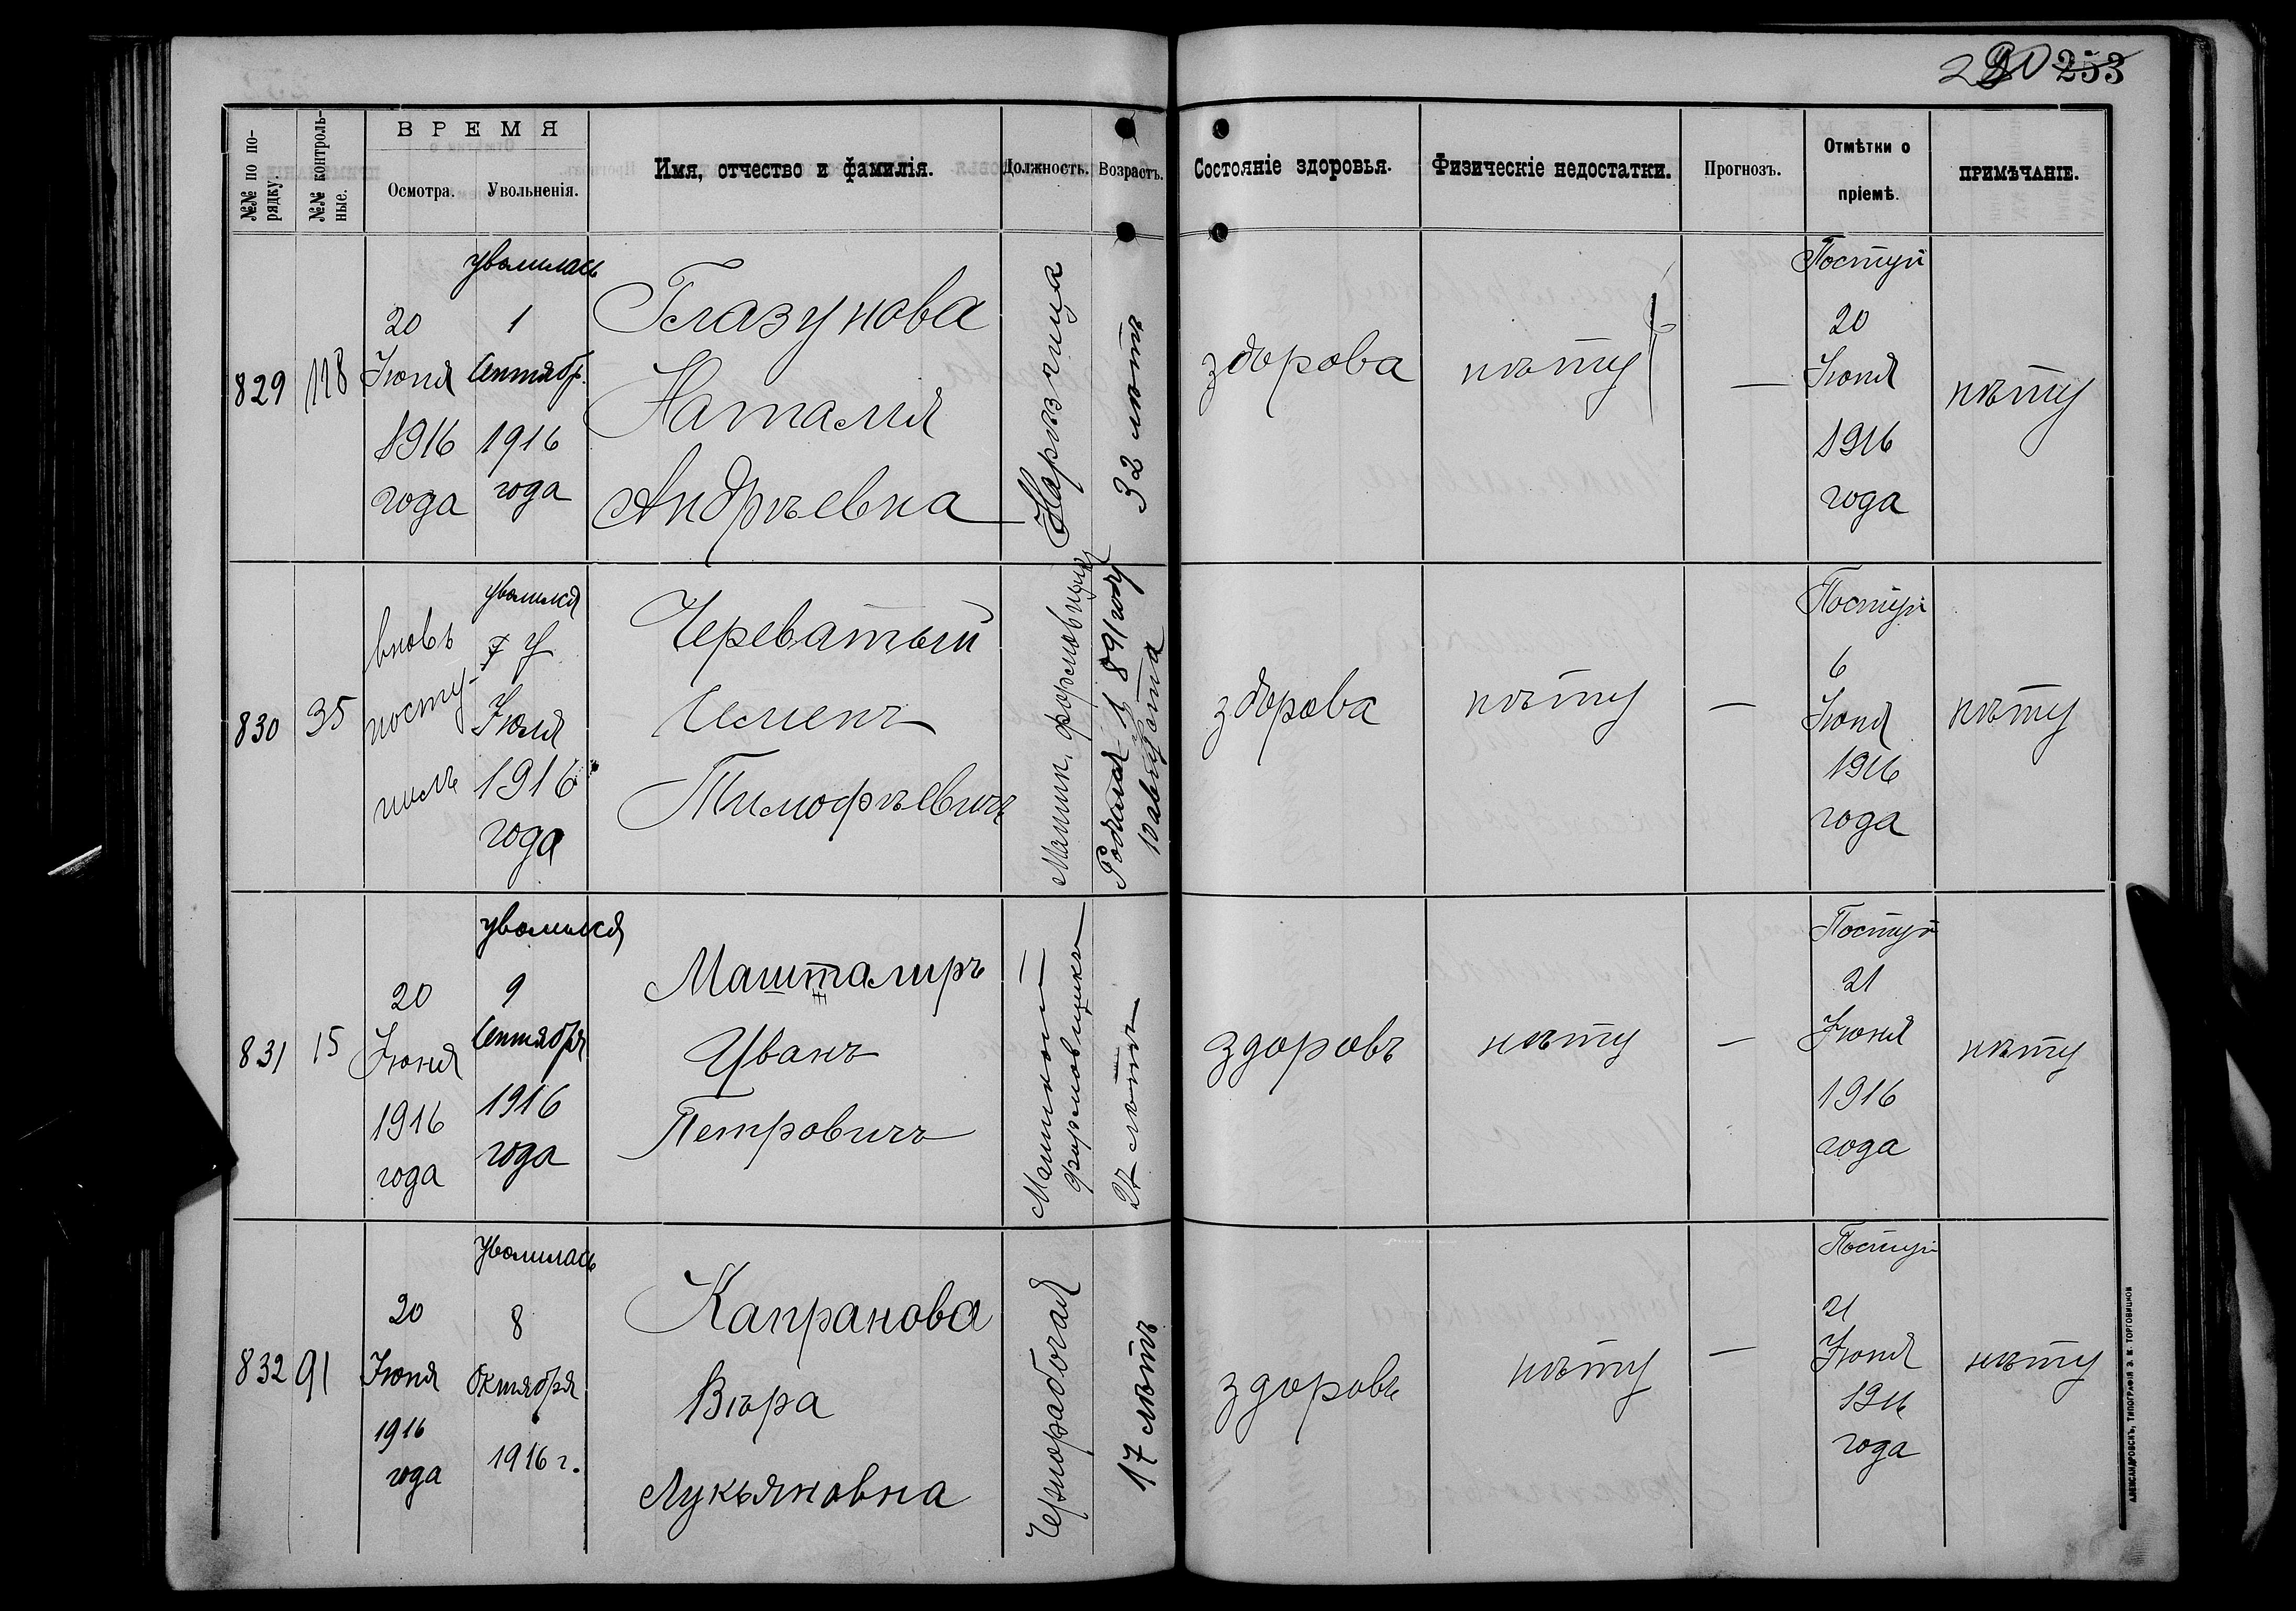 250 253
№№ по по-
рядку.
№№ контроль-
ные.
ВРЕМЯ
Осмотра.
Увольненія.
Имя, отчество и фамилія.
Должность.
Возрастъ.
Состояніе здоровья.
Физическіе недостатки.
Прогнозъ.
Отмѣтки о
пріемѣ.
ПРИМѢЧАНІЕ.
829
118
20
Іюня
1916
года
уволилась
1
Сентябр.
1916
года
Глазунова
Наталія
Андрѣевна
Нарѣзчица
32 лѣтъ
здорова
нѣту
—
Поступ
20
Іюня
1916
года
нѣту
830
35
вновь
посту-
пилъ
уволился
7
Іюля
1916
года
Череватый
Семенъ
Тимофѣевичъ
Машин. формовщикъ
Родился 1891 году
10 августа
здорова
нѣту
—
Поступ
6
Іюня
1916
года
нѣту
831
15
20
Іюня
1916
года
уволился
9
Сентября
1916
года
Машталиръ
Иванъ
Петровичъ
Машиной
формовщикъ
27 лѣтъ
здоровъ
нѣту
—
Поступ
21
Іюня
1916
года
нѣту
832
91
20
Іюня
1916
года
Уволилась
8
Октября
1916 г.
Капранова
Вѣра
Лукьяновна
Чернорабочая
17 лѣтъ
здоровъ
нѣту
—
Поступ
21
Іюня
1916
года
нѣту
АЛЕКСАНДРОВСКЪ, ТИПОГРАФІЯ Э. И. ТОРГОВИЦКОЙ